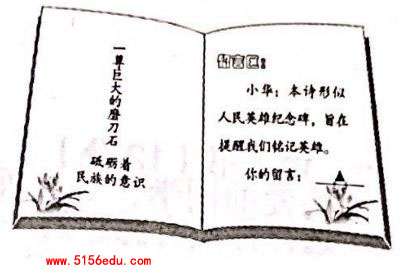 一尊巨大的磨刀石
砥砺着
民族的意识
留言
小华：本诗形似
人民英雄纪念碑，旨在
提醒我们铭记英雄。
你的留言：▲
www.5156edu.com